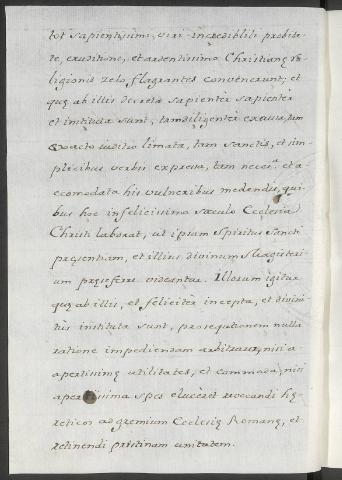 tot sapientissimi viri incredibili probita-
te, eruditione, et ardentissimo Christianę re-
ligionis zelo flagrantes convenerunt, et
quę ab illis decreta sapientèr sapientèr
et instituta sunt, tam diligentèr excussa, tam
exacto iuditio limata, tam sanctis, et sim-
plicibus verbis expressa, tam necess.ª et a-
ccomodata his vulneribus medendis, qui-
bus hoc infelicissimo sæculo Ecclesia
Christi laborat, ut ipsam Spiritus Sancti
pręsentiam, et illius divinum Magisteri-
um pręseferre videantur. Illorum igitur
quę ab illis, et felicitèr incepta, et divini-
tùs instituta sunt, prosequtionem nulla
ratione impediendam arbitraur, nisi a
apertissimę utilitates, et commoda, nisi
apertissima spes eluceret revocandi hę-
reticos ad gremium Ecclesię Romanę, et
retinendi pristinam unitatem.